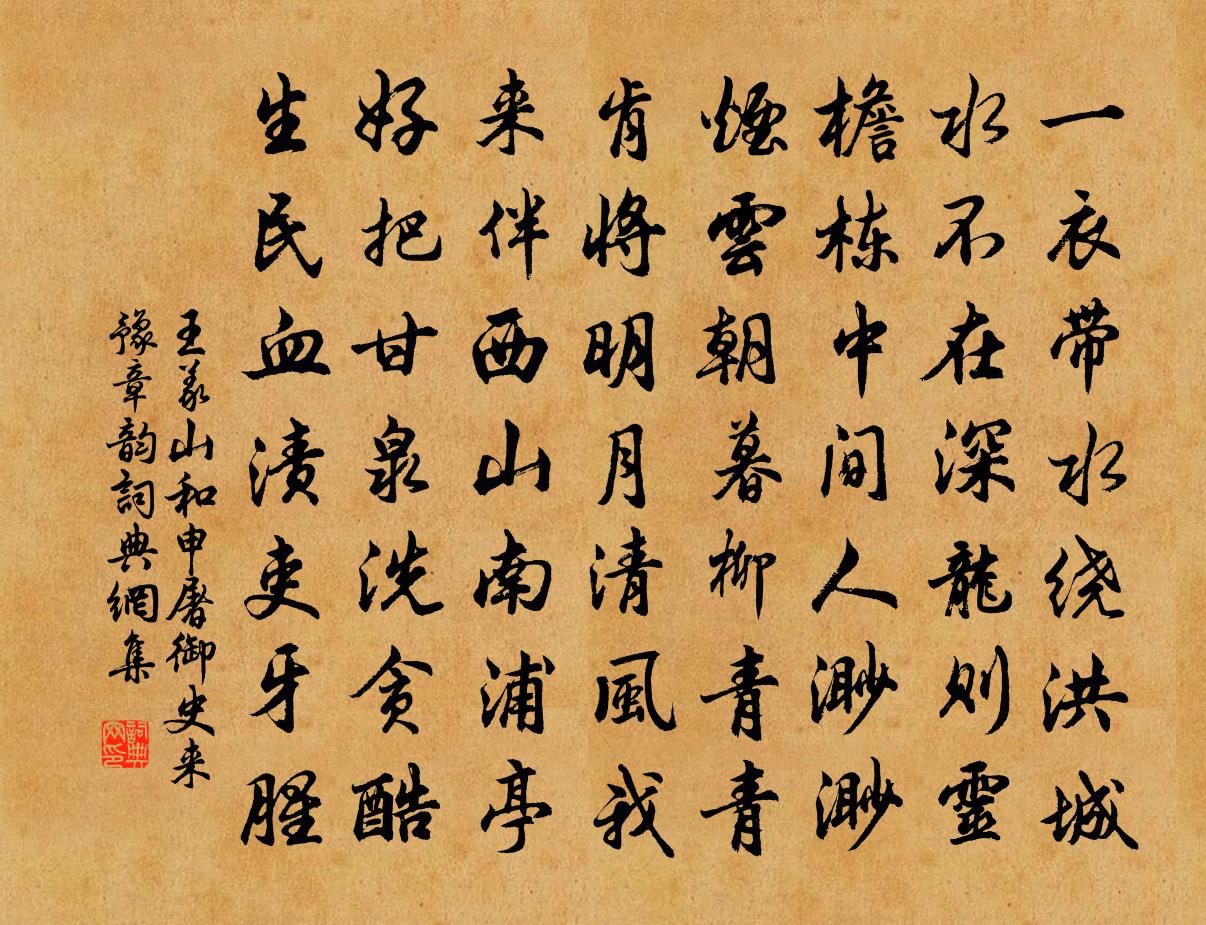 一衣带水绕洪城
水不在深龍则靈
檐栋中间人渺渺
煙雲朝暮柳青青
肯将明月清風我
来伴西山南浦亭
好把甘泉洗贪酷
生民血渍吏牙腥
王义山和申屠御史来
豫章韵詞典網集
詞典
网印